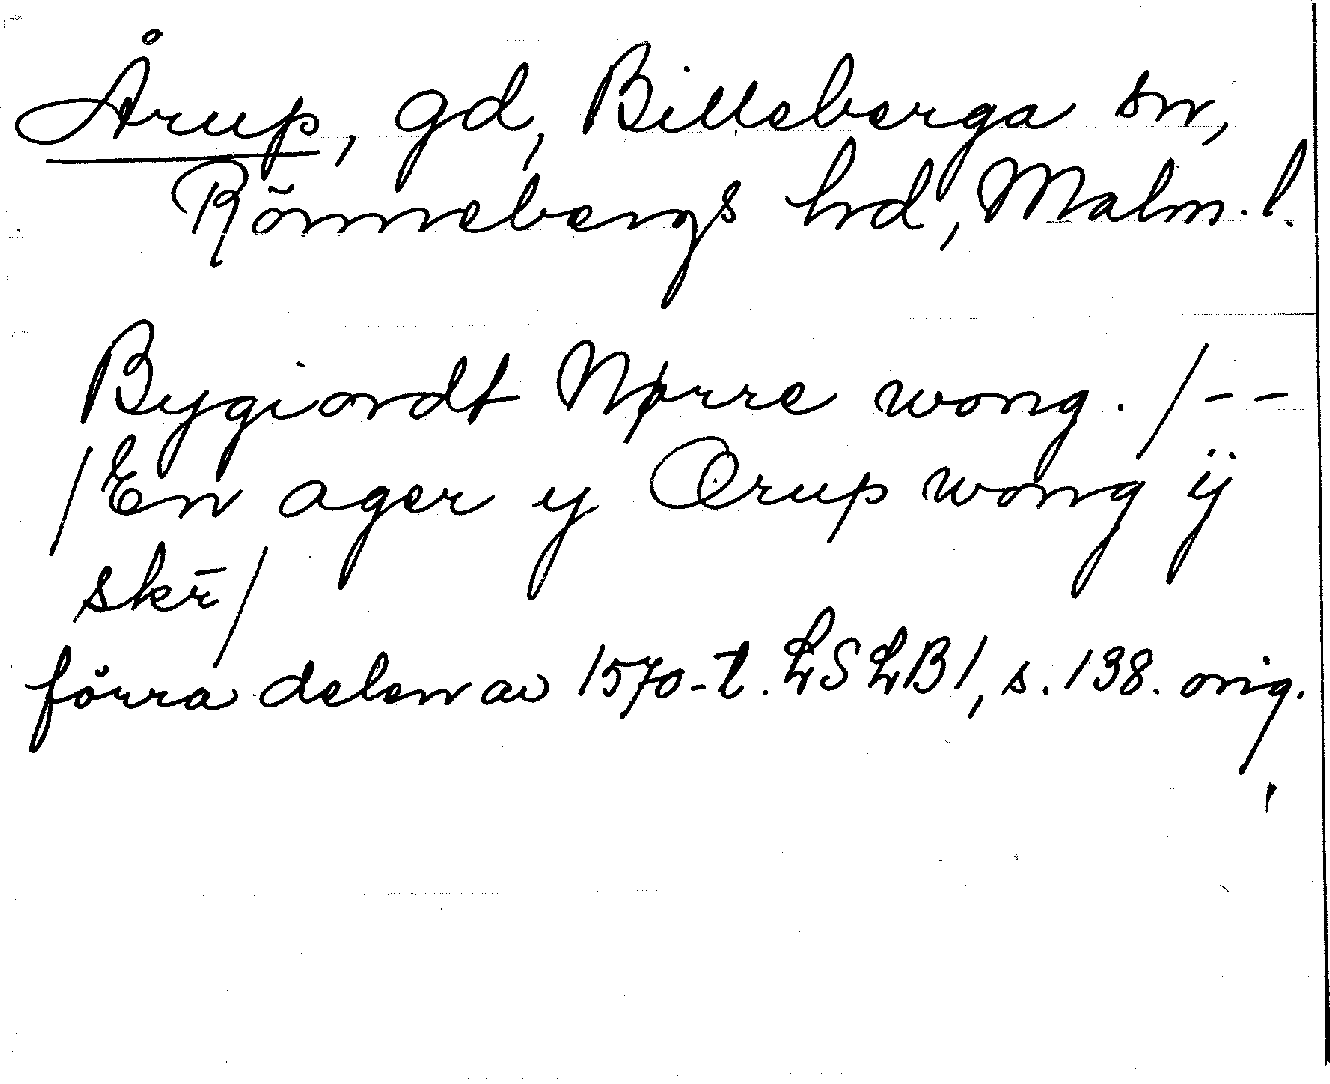 Årup, gd, Billeberga sn,
Rönnebergs hrd, Malm. l.
Bygiordt Nørre wong. /--
/En ager y Ørup wong ÿ
skr̄/
förra delen av 1570-t. LSLB1, s. 138. orig.